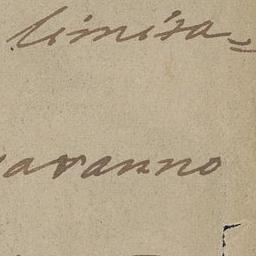 limita=
avranno